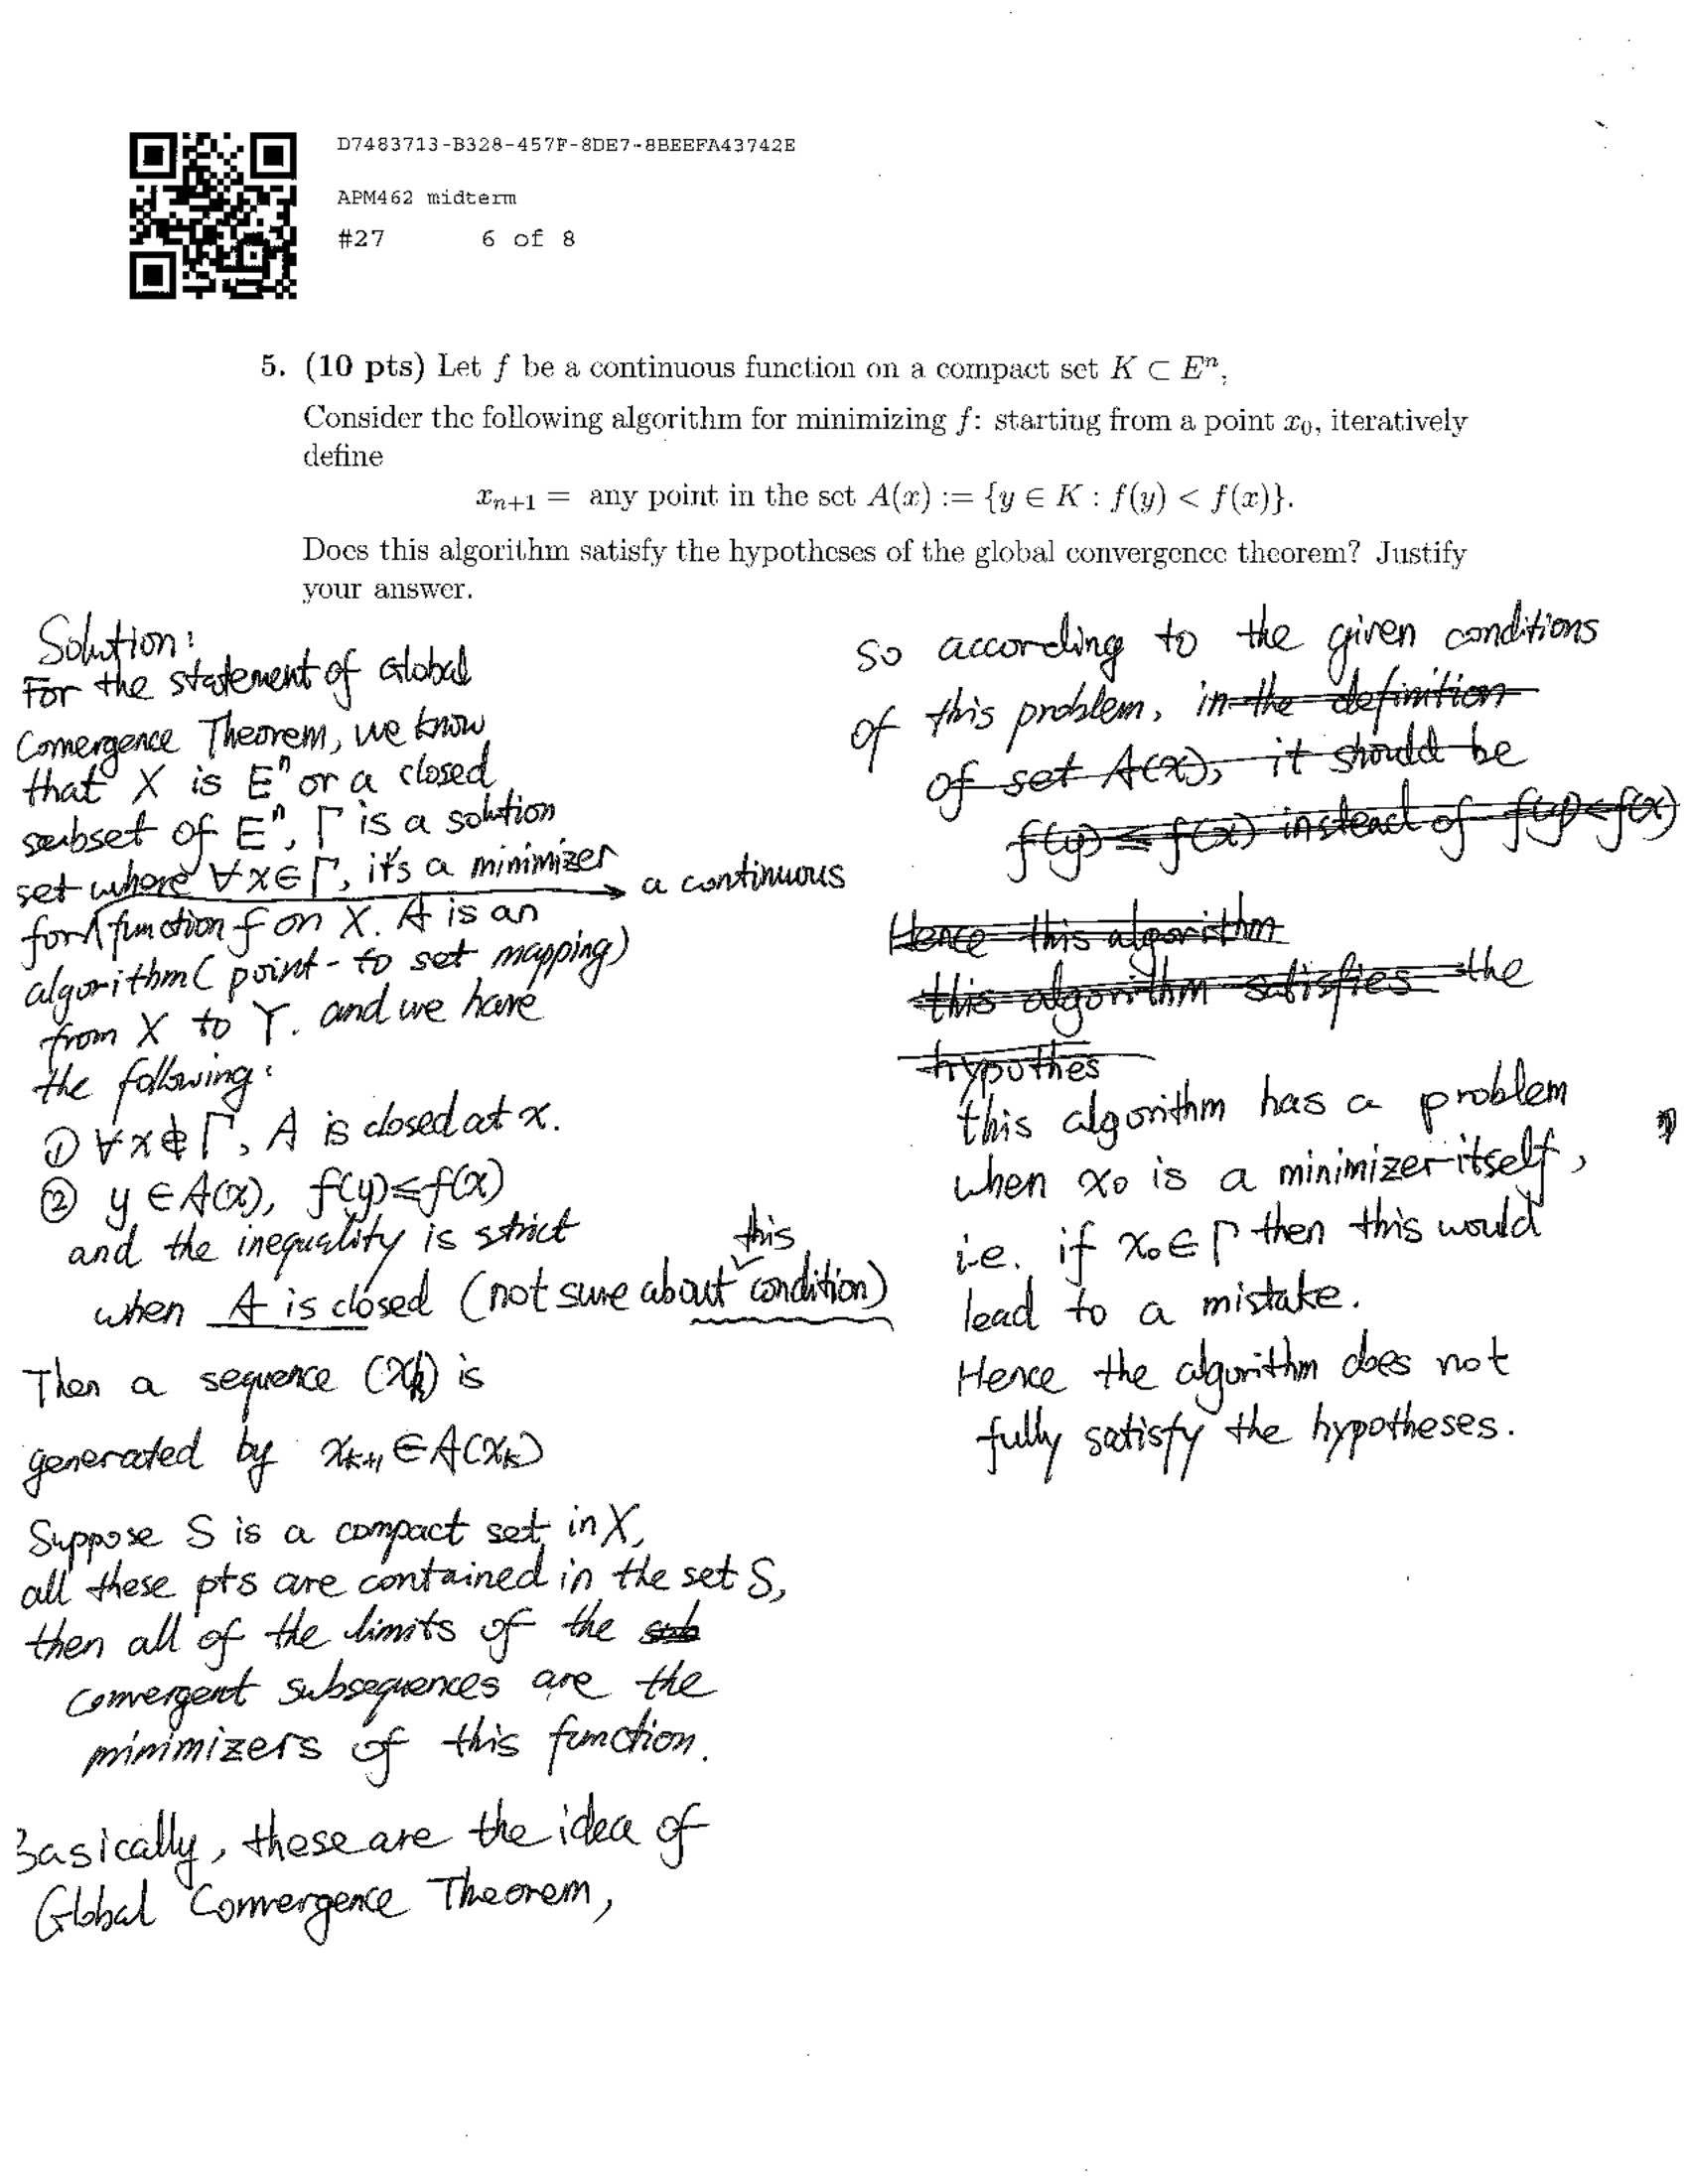 D7483713-B328-457F-8DE7-8BEEFA43742E
APM462 midterm
#27 6 of 8
5. (10 pts) Let f be a continuous function on a compact set K ⊂ Eⁿ,
Consider the following algorithm for minimizing f: starting from a point x₀, iteratively
define
xₙ₊₁ = any point in the set A(x) := {y ∈ K : f(y) < f(x)}.
Does this algorithm satisfy the hypotheses of the global convergence theorem? Justify
your answer.
Solution:
For the statement of Global
Convergence Theorem, we know
that X is Eⁿ or a closed
subset of Eⁿ, Γ is a solution
set where ∀x∈Γ, it's a minimizer
a continuous
for function f on X. A is an
algorithm (point-to set mapping)
from X to Y. and we have
the following:
① ∀x∉Γ, A is closed at x.
② y ∈ A(x), f(y) ≤ f(x)
and the inequality is strict
when A is closed (not sure about this condition)
Then a sequence (xₖ) is
generated by xₖ₊₁ ∈ A(xₖ)
Suppose S is a compact set in X,
all these pts are contained in the set S,
then all of the limits of the sub
convergent subsequences are the
minimizers of this function.
Basically, these are the idea of
Global Convergence Theorem,
so according to the given conditions
of this problem, in the definition
of set A(x), it should be
f(y) ≤ f(x) instead of f(y)<f(x)
Hence this algorithm
this algorithm satisfies the
hypothes
this algorithm has a problem
when x₀ is a minimizer itself,
i.e. if x₀ ∈ Γ then this would
lead to a mistake.
Hence the algorithm does not
fully satisfy the hypotheses.